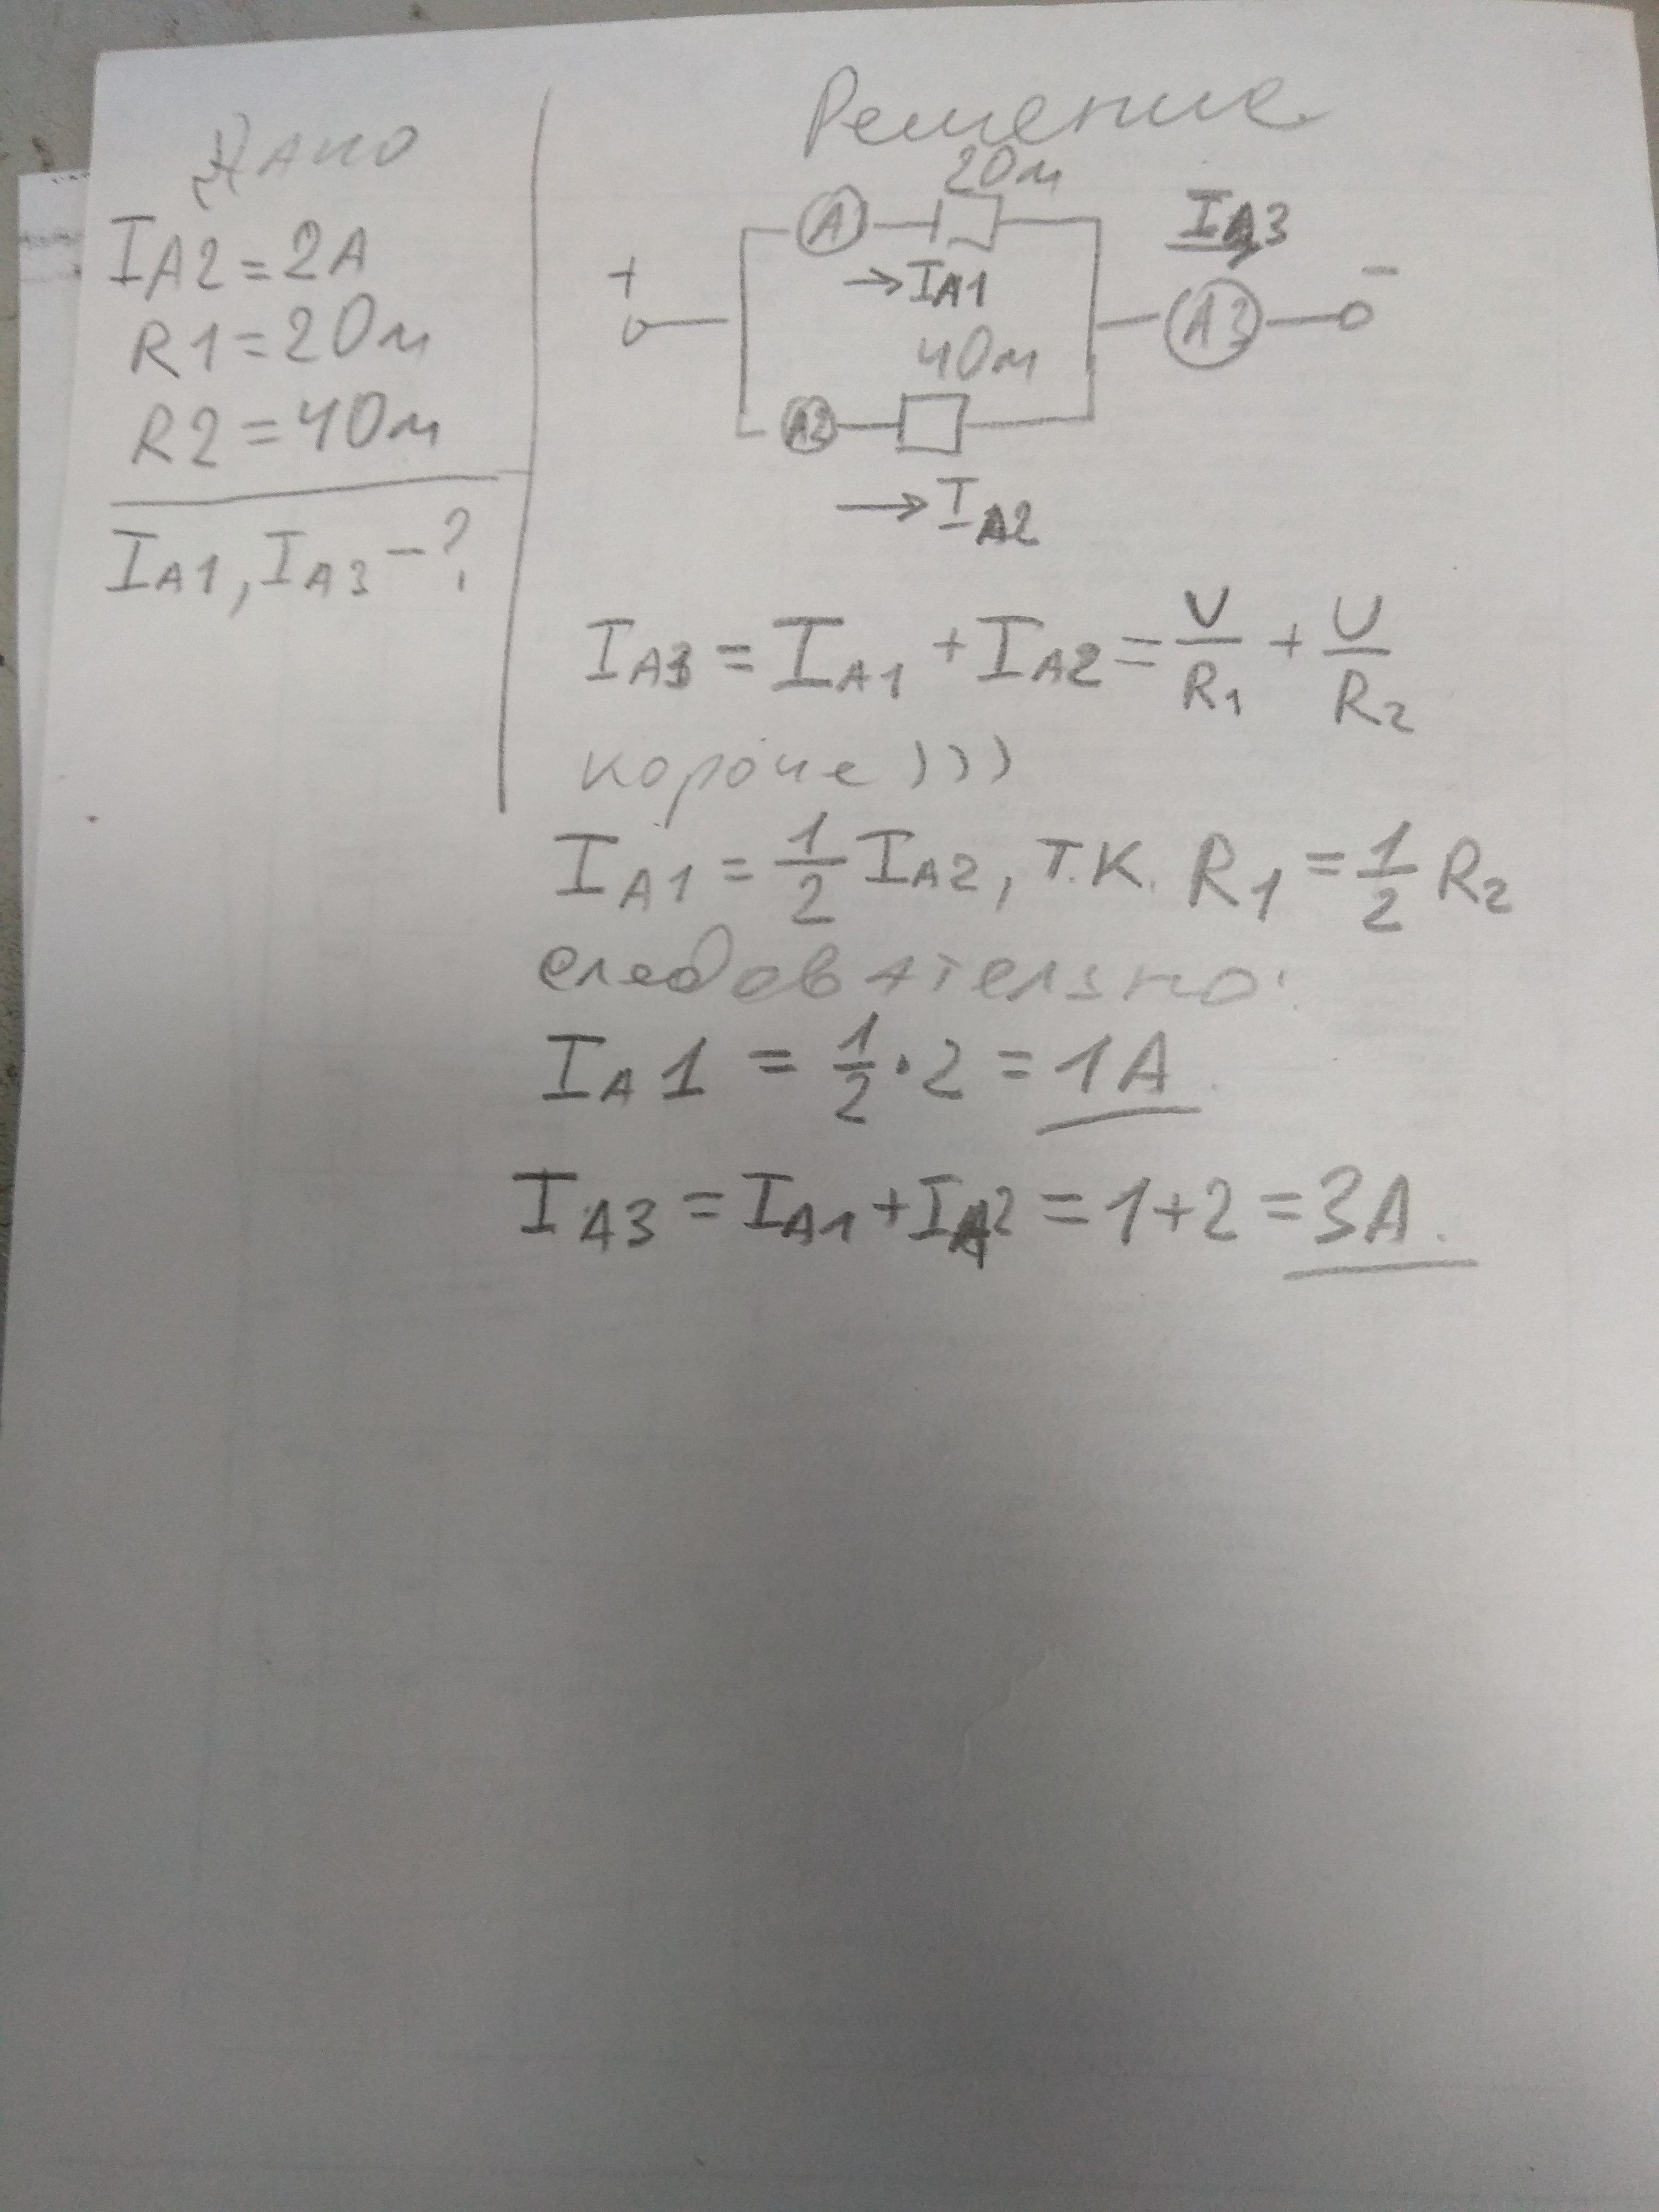 Дано
I A2 = 2А
R1 = 2 Ом
R2 = 4 Ом
I A1, I A3 - ?
Решение
2 Ом
A
→ I A1
I A3
+
-
A3
4 Ом
A2
→ I A2
I A3 = I A1 + I A2 = U/R1 + U/R2
короче )))
I A1 = 1/2 I A2, т.к. R1 = 1/2 R2
следовательно:
I A1 = 1/2 · 2 = 1А
I A3 = I A1 + I A2 = 1+2 = 3А.